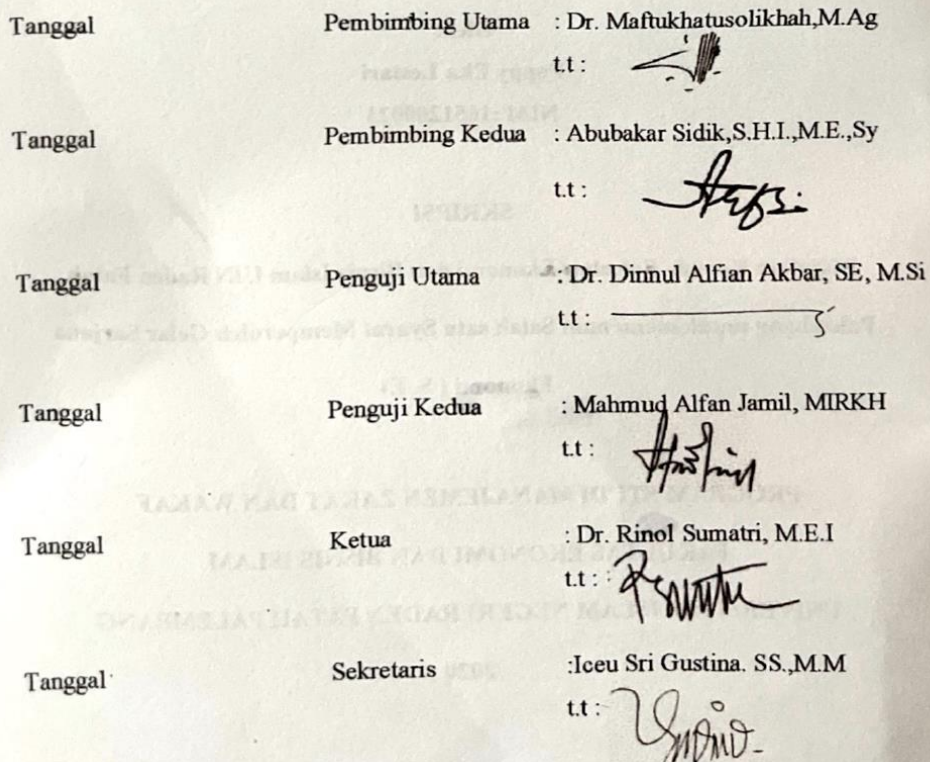 Tanggal Pembimbing Utama : Dr. Maftukhatusolikhah,M.Ag
t.t :
Tanggal Pembimbing Kedua : Abubakar Sidik,S.H.I.,M.E.,Sy
t.t :
Tanggal Penguji Utama : Dr. Dinnul Alfian Akbar, SE, M.Si
t.t :
Tanggal Penguji Kedua : Mahmud Alfan Jamil, MIRKH
t.t :
Tanggal Ketua : Dr. Rinol Sumatri, M.E.I
t.t :
Tanggal Sekretaris :Iceu Sri Gustina. SS.,M.M
t.t :